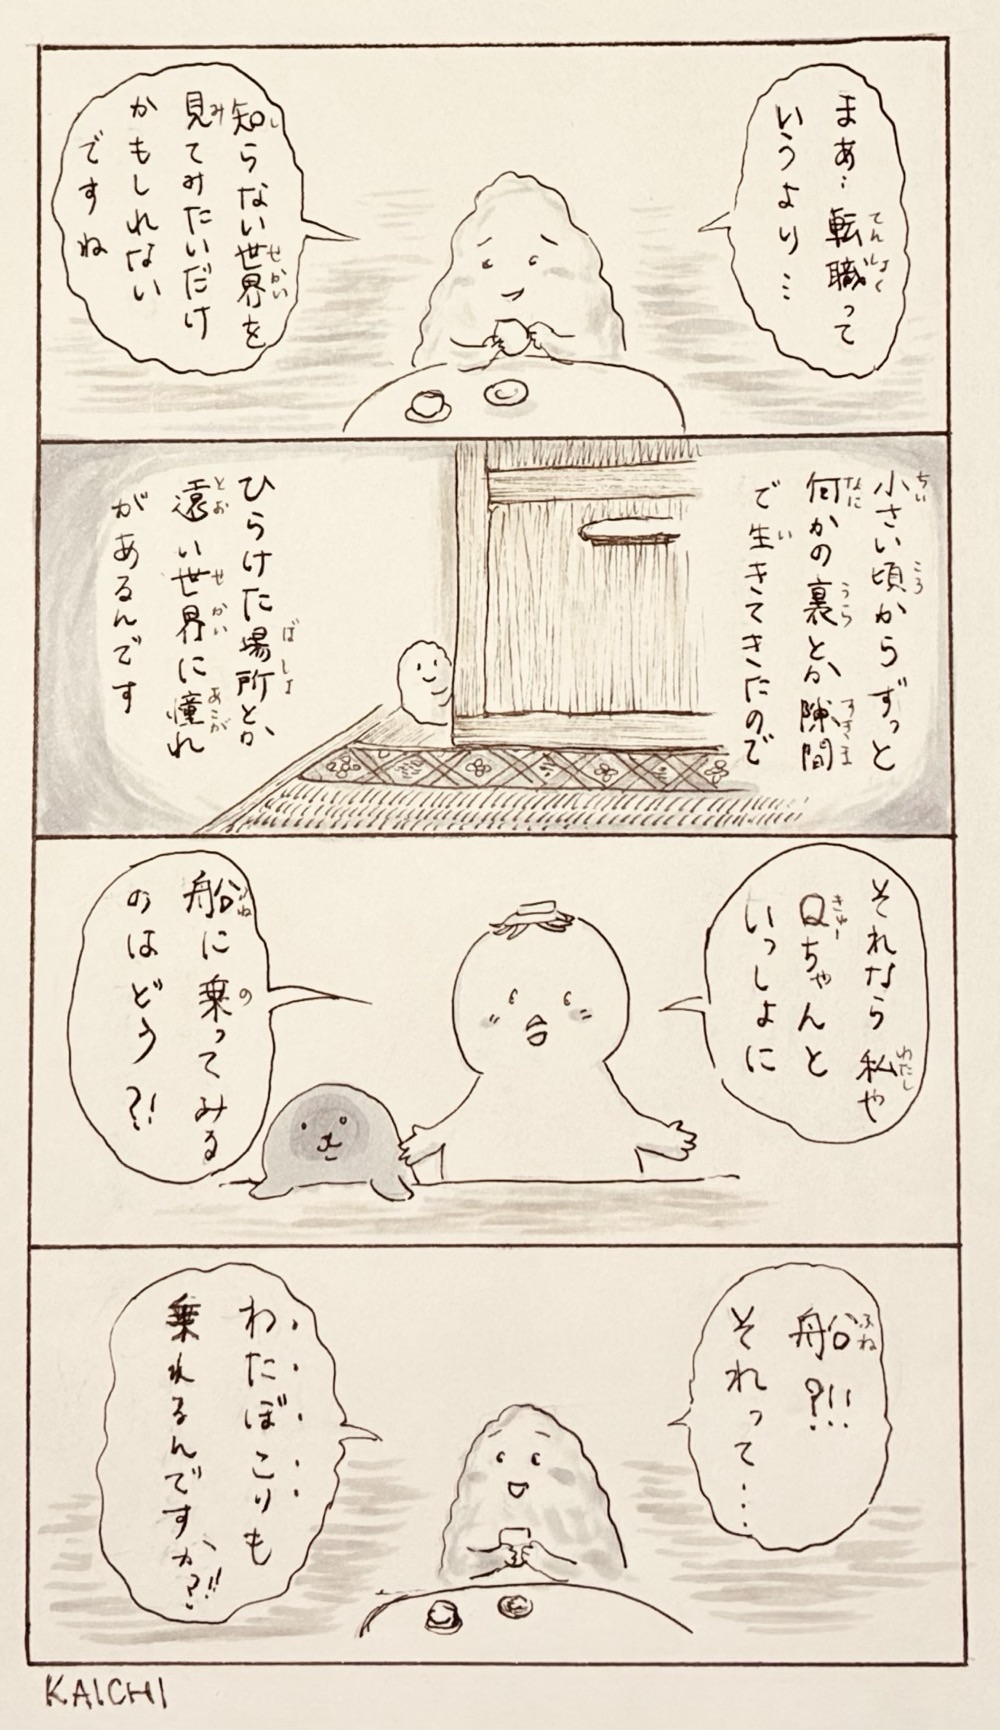 まあ…転職って
いうより…
知らない世界を
見てみたいだけ
かもしれない
ですね
小さい頃からずっと
何かの裏とか隙間
で生きてきたので
ひらけた場所とか
遠い世界に憧れ
があるんです
それなら私や
Qちゃんと
いっしょに
船に乗ってみる
のはどう?!
船?!!
それって…
わたぼこりも
乗れるんですか?!!
KAICHI